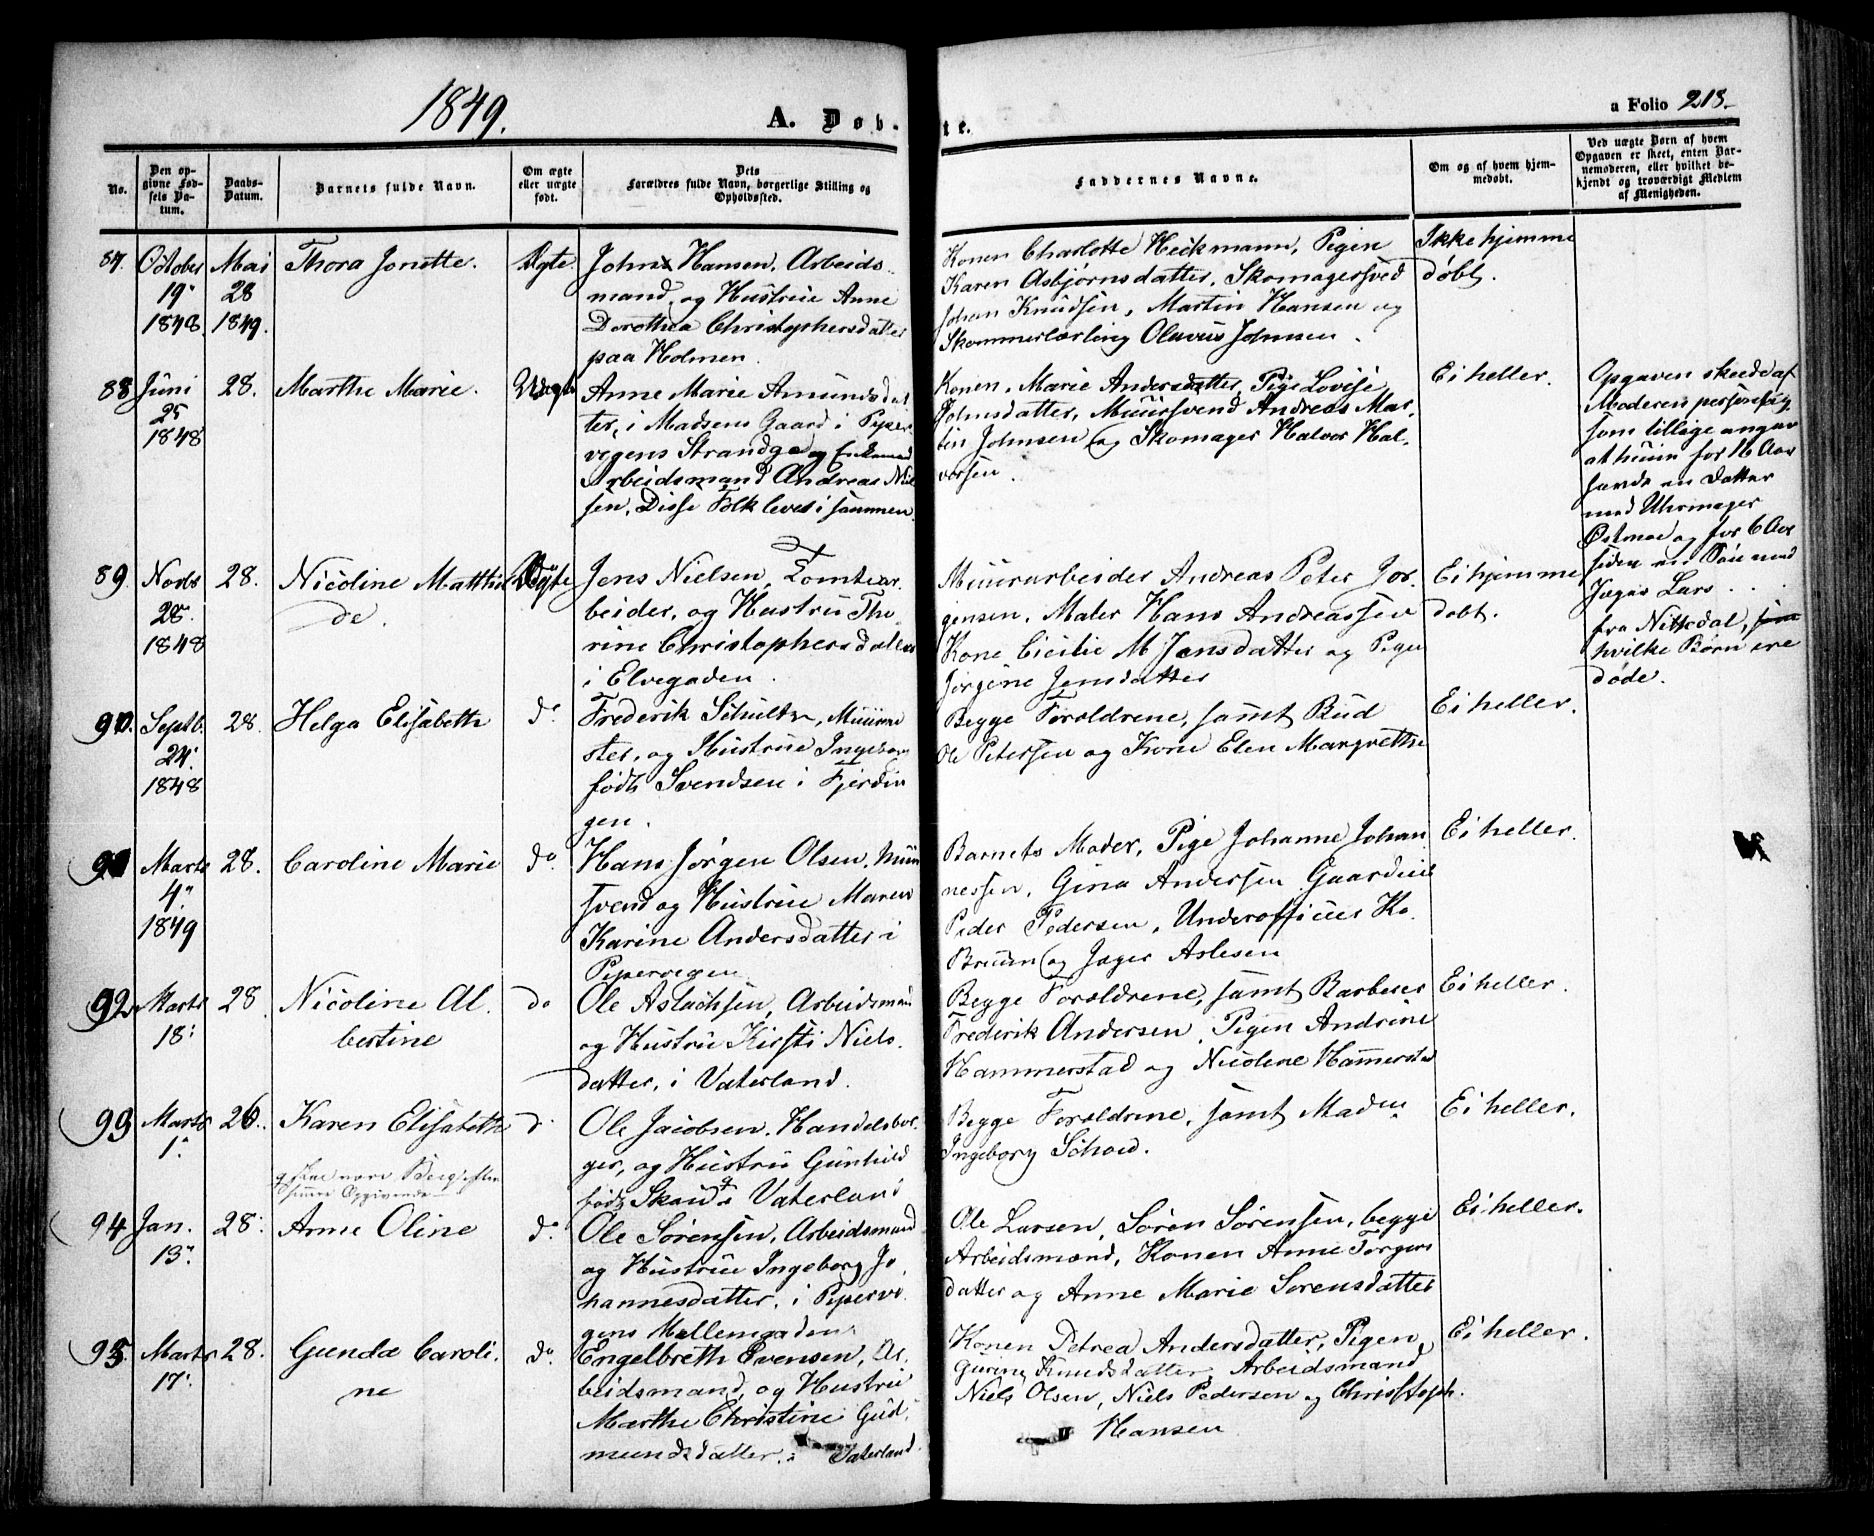 1849.
A. Døb-
te.
a Folio 218.
No.
Den op-
givne Fød-
sels Da-
tum.
Daabs-
Datum.
Barnets fulde Navn.
Om ægte
eller uægte
født.
Dets
Forældres fulde Navn, borgerlige Stilling og
Opholdssted.
Faddernes Navne.
Om og af hvem hjem-
medøbt.
Ved uægte Børn af hvem
Opgaven er skeet, enten Bar-
nemoderen, eller hvilket be-
kjendt og troværdigt Medlem
af Menigheden.
87.
October
19
1848.
Mai
28
1849.
Thora Jonette.
Ægte.
John Hansen, Arbeids
mand, og Hustrue Anne
Dorothea Christophersdatter
paa Holmen.
Konen Charlotte Heckmann, Pigen
Karen Asbjørnsdatter, Skomagersved
Johan Knudsen, Martin Hansen og
Skommerlærling Olavus Johnsen.
Ikke hjemme
døbt.
88
Juni
25
1848
28.
Marthe Marie.
Uægte
Anne Marie Amundsdat
ter, i Madsens Gaard i Piper
vigens Strandga og Enkemand
Arbeidsmand Andreas Niel
sen, Disse Folk lever i sammen.
Konen, Marie Andersdatter, Pige Lovise
Johnsdatter, Muursvend Andreas Mar-
tin Johnsen og Skomager Halvor Hal-
vorsen.
Ei heller.
Opgaven skeedd af
Moderen personlig
som tillige angav
at hun for 16 Aar
havde en Datter
med Uhrmager
Østmoe og for 6 Aar
siden en Søn med
Jæger Lars
fra Nittedal,
hvilke Børn ere
døde.
89.
Novb
28.
1848
28.
Nicoline Matthil
de.
Ægte
Jens Nielsen, Tomtear
beider, og Hustru Tho-
rine Christophersdatter
i Elvegaden.
Muurarbeider Andreas Peter Jør-
gensen, Maler Hans Andreassen
Kone Cicilie M Jensdatter og Pige
Jørgine Jensdatter
Ei hjemme
døbt.
90.
Septb.
24.
1848
28.
Helga Elisabeth
do
Frederik Schultz, Muurme
ster, og Hustrue Ingeborg
født Svendsen i Fjerdin
gen.
Begge Forældrene, samt Bud
Ole Petersen og Kone Elen Margrethe
Ei heller.
91
Marts
4.
1849
28.
Caroline Marie
do.
Hans Jørgen Olsen, Muur
svend og Hustrue Maren
Karine Andersdatter i
Pipervigen
Barnets Moder, Pige Johanne Johan
nessen, Gina Andersen Gaardeier
Peder Pedersen, Underofficier Ko.
Bruun og Jæger Aslesen
Ei heller.
92
Marts
18.
28
Nicoline Al
bertine
do
Ole Aslachsen, Arbeidsman
og Hustrue Kirsti Niels
datter, i Vaterland.
Begge Forældrene, samt Barberer
Frederik Andersen, Pigen Andrine
Hammerstad og Nicoline Hammersted
Ei heller.
93
Marts
1.
26.
Karen Elisabeth
Ole Jacobsen, Handelsbor
ger, og Hustru Gunhild
født Skoie i Vaterland
Begge Forældrene, samt Madm
Ingeborg Schoie.
Ei heller.
94
Jan.
13.
28.
Anne Oline
do.
Ole Sørensen, Arbeidsmand
og Hustrue Ingeborg Jo
hannesdatter, i Pipervi
gens Mellemgaden
Ole Larsen, Søren Sørensen, begge
Arbeidsmænd, Konen Anne Torgers
datter og Anne Marie Sørensdatter
Ei heller.
95.
Marts
17.
28.
Gunda Caroli.
ne
do.
Engelbreth Evensen, Ar.
beidsmand, og Hustru
Marthe Christine Gud,
mundsdatter, i Vaterland.
Konen Petrea Andersdatter, Pigen
Gurine Knudsdatter, Arbeidsmand
Niels Olsen, Niels Pedersen og Christoph.
Hansen
Ei heller.